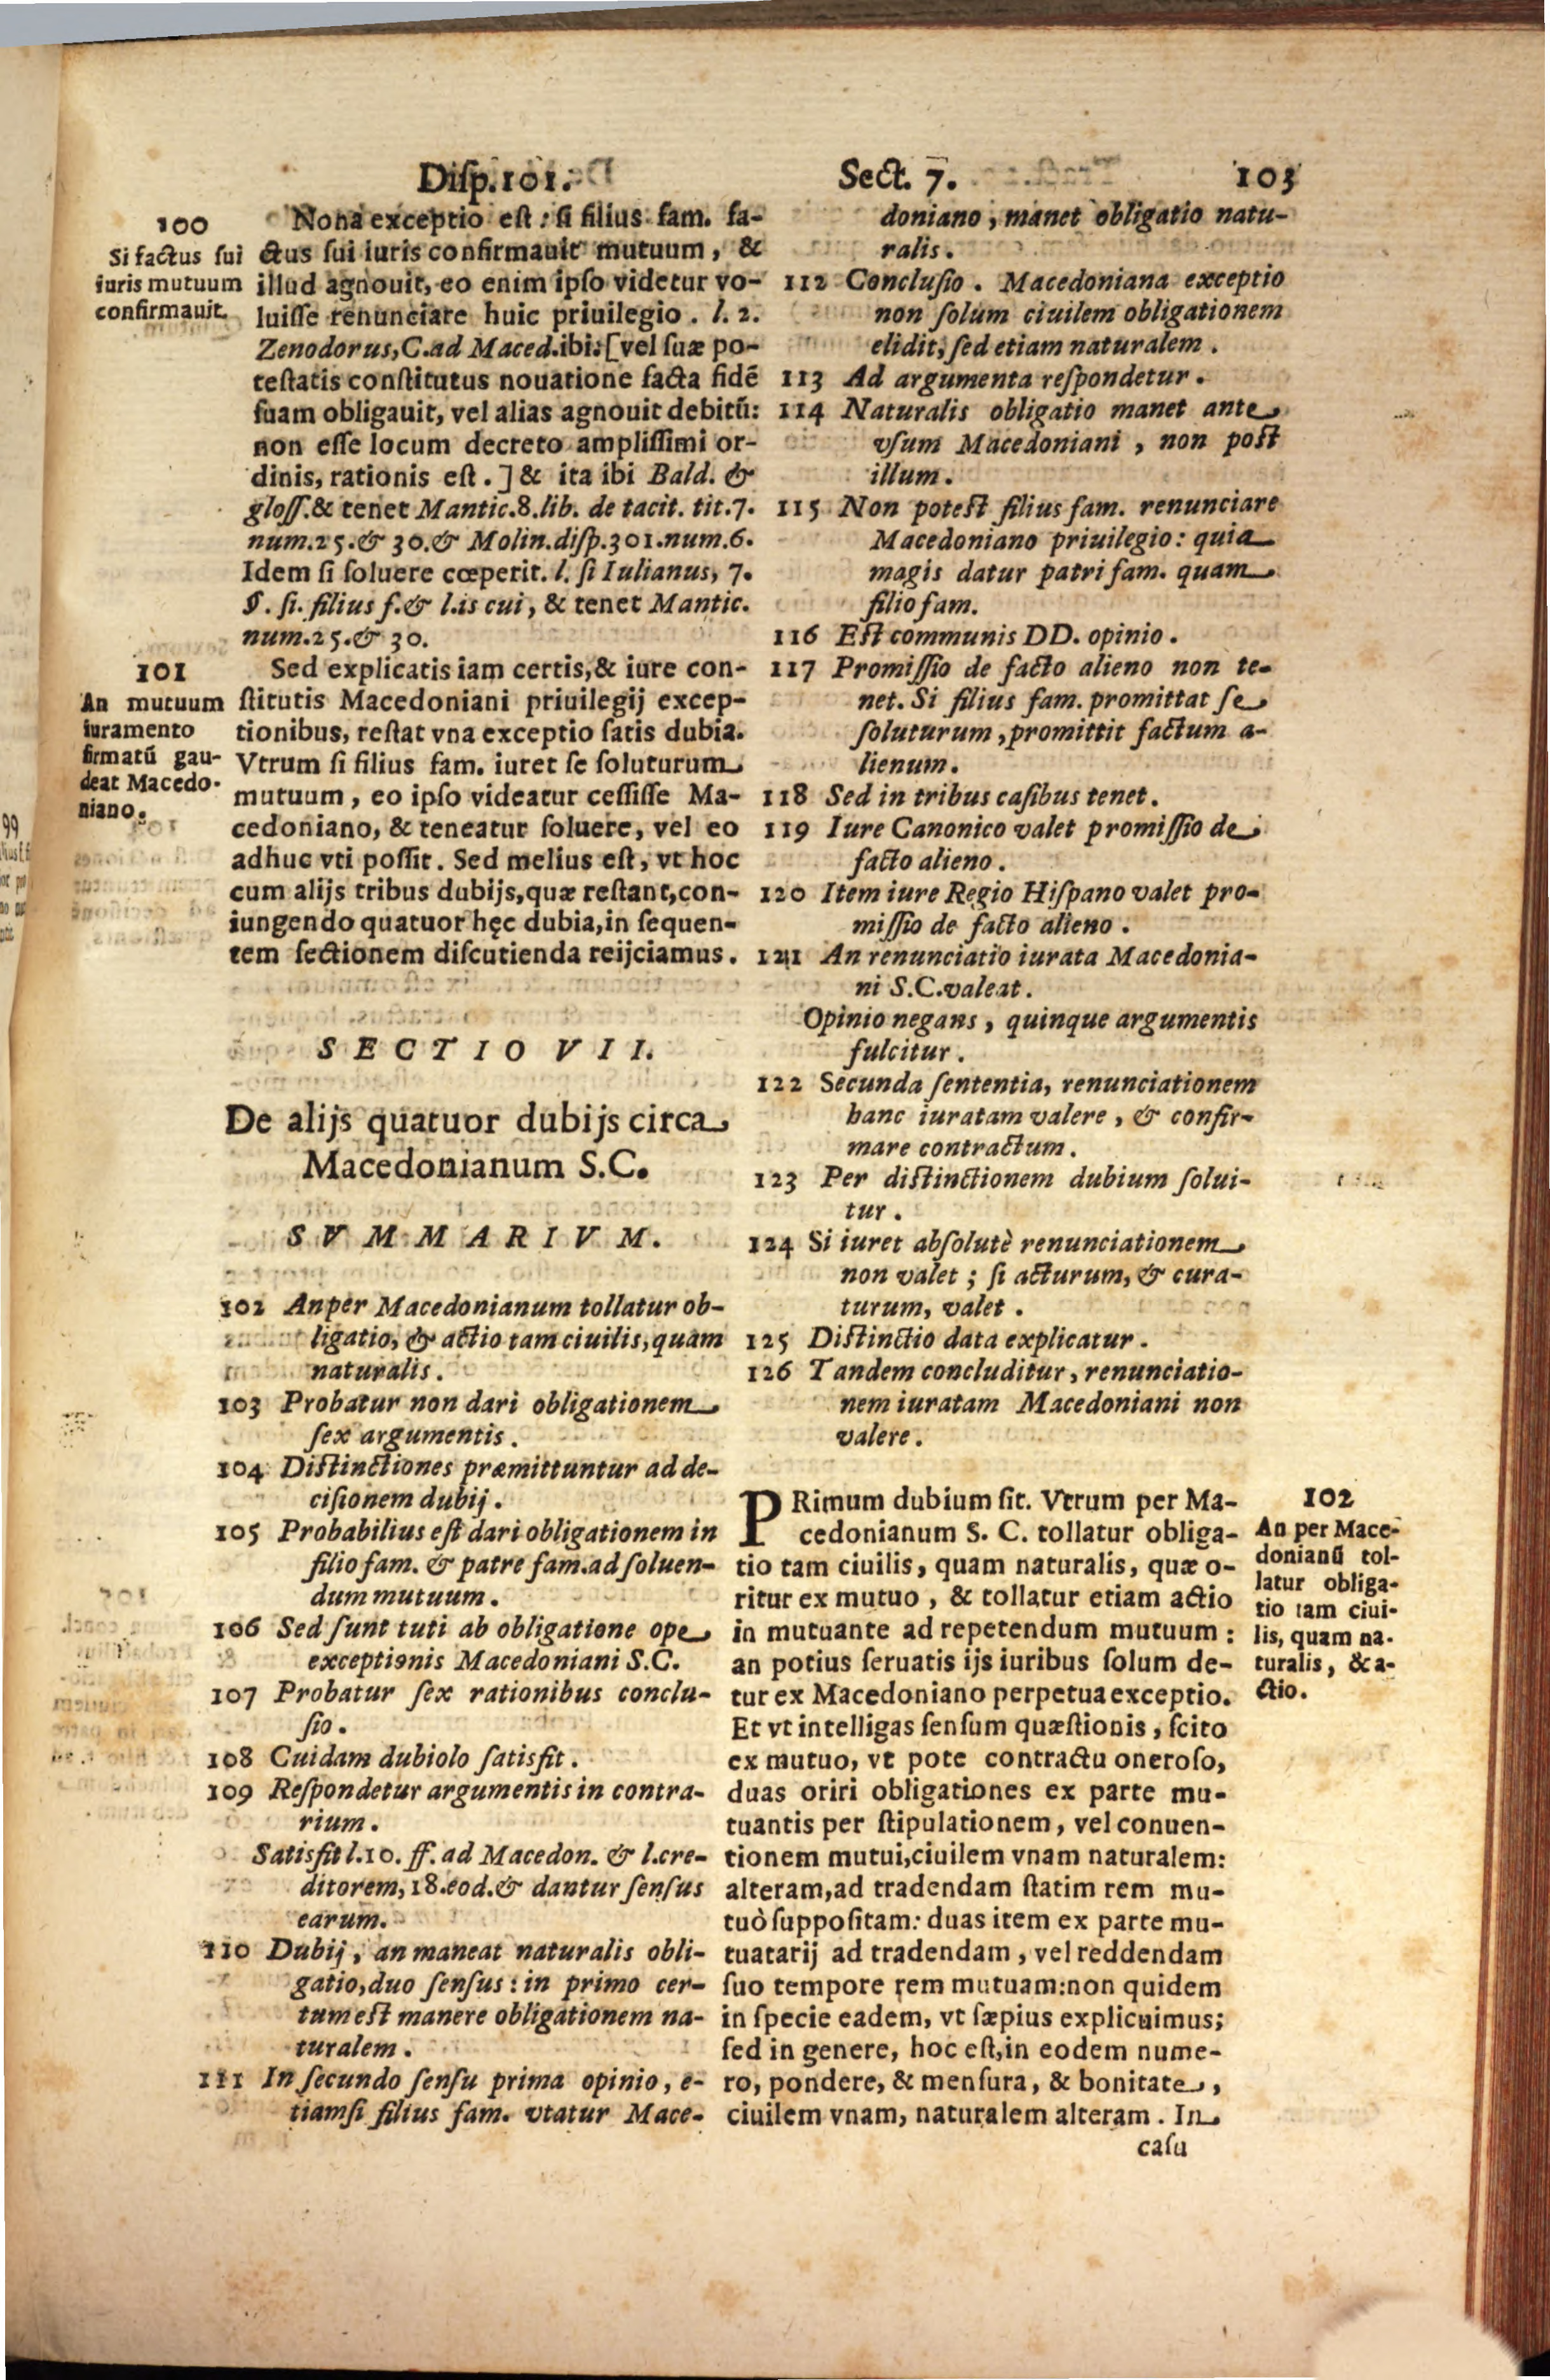 Disp.101. Sect. 7. 103
100
Si factus sui
iuris mutuum
confirmauit.
Nona exceptio est: si filius fam. fa-
ctus sui iuris confirmauit mutuum, &
illud agnouit, eo enim ipso videtur vo-
luisse renunciare huic priuilegio. l. 2.
Zenodorus, C.ad Maced.ibi: [vel suæ po-
testatis constitutus nouatione facta fidē
suam obligauit, vel alias agnouit debitū:
non esse locum decreto amplissimi or-
dinis, rationis est.] & ita ibi Bald. &
gloss.& tenet Mantic.8.lib. de tacit. tit.7.
num.25.& 30.& Molin.disp.301.num.6.
Idem si soluere cœperit. l. si Iulianus, 7.
§. si. filius f.& l.is cui, & tenet Mantic.
num.25.& 30.
101
An mutuum
iuramento
firmatū gau-
deat Macedo-
niano.
Sed explicatis iam certis,& iure con-
stitutis Macedoniani priuilegij excep-
tionibus, restat vna exceptio satis dubia.
Vtrum si filius fam. iuret se soluturum
mutuum, eo ipso videatur cessisse Ma-
cedoniano, & teneatur soluere, vel eo
adhuc vti possit. Sed melius est, vt hoc
cum alijs tribus dubijs,quæ restant,con-
iungendo quatuor hęc dubia,in sequen-
tem sectionem discutienda reijciamus.
SECTIO VII.
De alijs quatuor dubijs circa
Macedonianum S.C.
SVMMARIVM.
102 An per Macedonianum tollatur ob-
ligatio, & actio tam ciuilis, quam
naturalis.
103 Probatur non dari obligationem
sex argumentis.
104 Distinctiones præmittuntur ad de-
cisionem dubij.
105 Probabilius est dari obligationem in
filio fam. & patre fam.ad soluen-
dum mutuum.
106 Sed sunt tuti ab obligatione ope
exceptionis Macedoniani S.C.
107 Probatur sex rationibus conclu-
sio.
108 Cuidam dubiolo satisfit.
109 Respondetur argumentis in contra-
rium.
Satisfit l.10. ff. ad Macedon. & l.cre-
ditorem, 18.eod.& dantur sensus
earum.
110 Dubij, an maneat naturalis obli-
gatio,duo sensus: in primo cer-
tum est manere obligationem na-
turalem.
111 In secundo sensu prima opinio, e-
tiamsi filius fam. vtatur Mace-
doniano, manet obligatio natu-
ralis.
112 Conclusio. Macedoniana exceptio
non solum ciuilem obligationem
elidit, sed etiam naturalem.
113 Ad argumenta respondetur.
114 Naturalis obligatio manet ante
vsum Macedoniani, non post
illum.
115 Non potest filius fam. renunciare
Macedoniano priuilegio: quia
magis datur patri fam. quam
filio fam.
116 Est communis DD. opinio.
117 Promissio de facto alieno non te-
net. Si filius fam. promittat se
soluturum, promittit factum a-
lienum.
118 Sed in tribus casibus tenet.
119 Iure Canonico valet promissio de
facto alieno.
120 Item iure Regio Hispano valet pro-
missio de facto alieno.
121 An renunciatio iurata Macedonia-
ni S.C.valeat.
Opinio negans, quinque argumentis
fulcitur.
122 Secunda sententia, renunciationem
hanc iuratam valere, & confir-
mare contractum.
123 Per distinctionem dubium solui-
tur.
124 Si iuret absolutè renunciationem
non valet; si acturum, & cura-
turum, valet.
125 Distinctio data explicatur.
126 Tandem concluditur, renunciatio-
nem iuratam Macedoniani non
valere.
PRimum dubium sit. Vtrum per Ma-
cedonianum S. C. tollatur obliga-
tio tam ciuilis, quam naturalis, quæ o-
ritur ex mutuo, & tollatur etiam actio
in mutuante ad repetendum mutuum:
an potius seruatis ijs iuribus solum de-
tur ex Macedoniano perpetua exceptio.
Et vt intelligas sensum quæstionis, scito
ex mutuo, vt pote contractu oneroso,
duas oriri obligationes ex parte mu-
tuantis per stipulationem, vel conuen-
tionem mutui,ciuilem vnam naturalem:
alteram,ad tradendam statim rem mu-
tuò suppositam: duas item ex parte mu-
tuatarij ad tradendam, vel reddendam
suo tempore rem mutuam:non quidem
in specie eadem, vt sæpius explicuimus;
sed in genere, hoc est,in eodem nume-
ro, pondere, & mensura, & bonitate,
ciuilem vnam, naturalem alteram. In
casu
102
An per Mace-
donianū tol-
latur obliga-
tio tam ciui-
lis, quam na-
turalis, & a-
ctio.